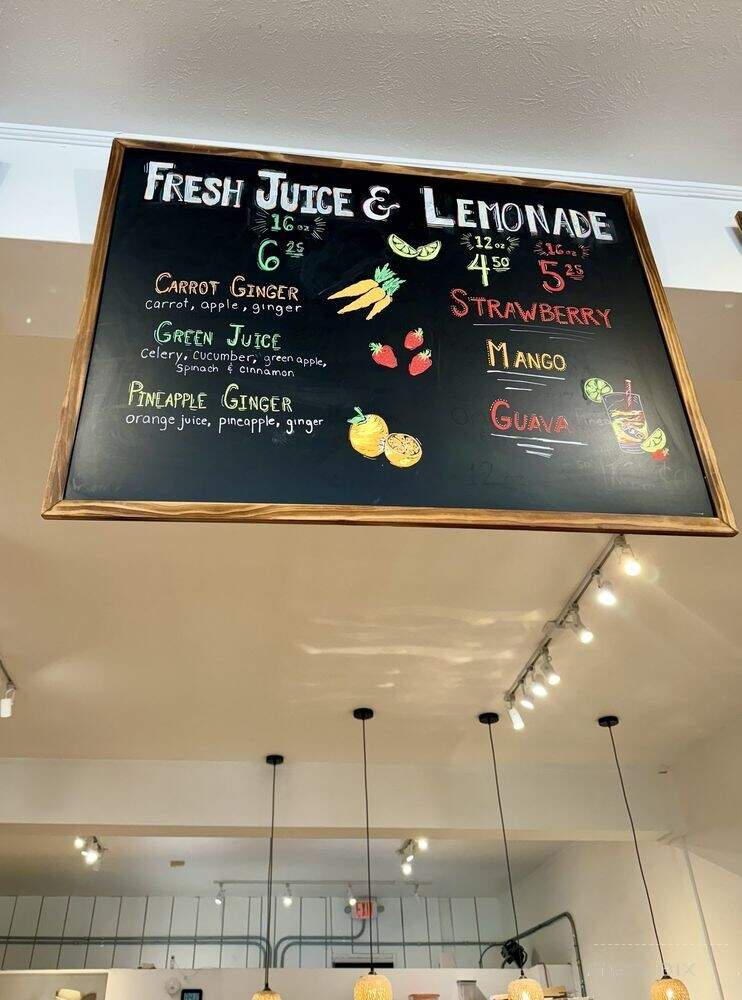 FRESH JUICE & LEMONADE
16 oz
6 25
CARROT GINGER
carrot, apple, ginger
GREEN JUICE
celery, cucumber, green apple,
spinach & cinnamon
PINEAPPLE GINGER
orange juice, pineapple, ginger
12 oz
4 50
16 oz
5 25
STRAWBERRY
MANGO
GUAVA
EXIT